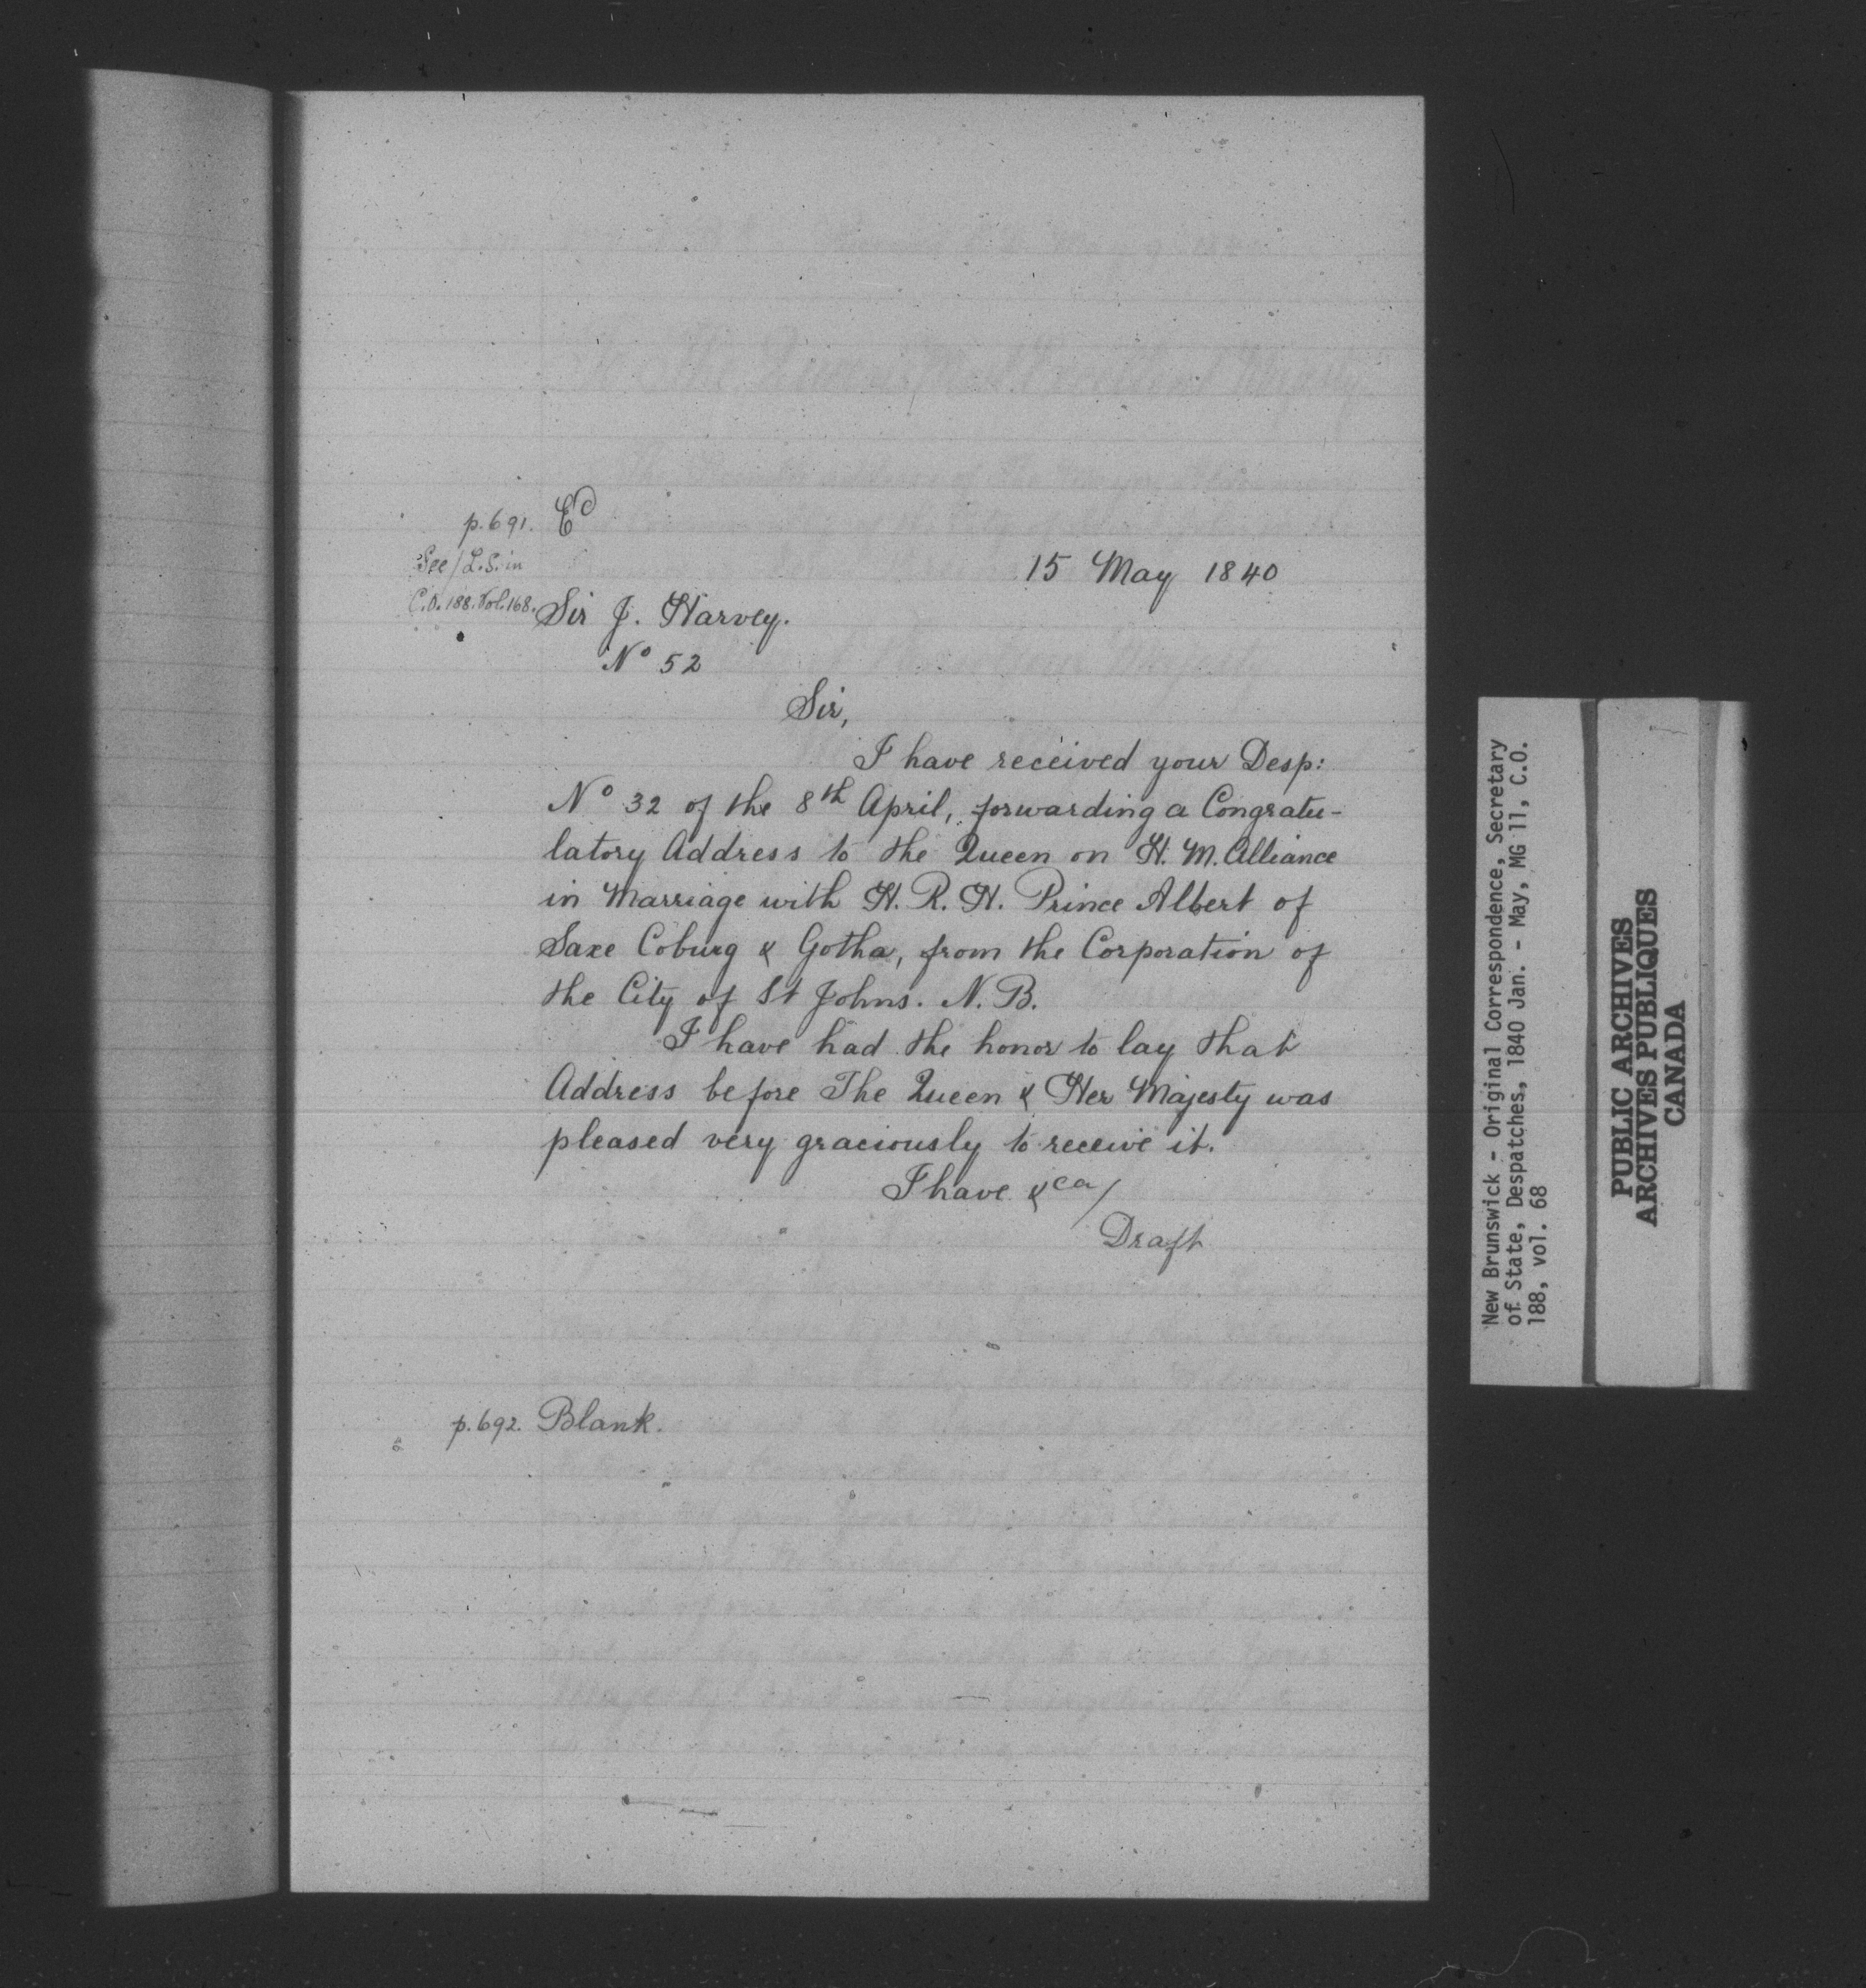 p.691. Ed
See/L.S. in
C.O. 188. Vol. 168.
15 May 1840
Sir J. Harvey.
No 52
Sir,
I have received your Desp:
No 32 of the 8th April, forwarding a Congratu-
latory Address to the Queen on H. M. Alliance
in Marriage with H. R. H. Prince Albert of
Saxe Coburg & Gotha, from the Corporation of
the City of St Johns. N. B.
I have had the honor to lay that
Address before The Queen & Her Majesty was
pleased very graciously to receive it.
I have &ca/
Draft
p.692. Blank.
New Brunswick - Original Correspondence, Secretary
of State, Despatches, 1840 Jan. - May, MG 11, C.O.
188, vol. 68
PUBLIC ARCHIVES
ARCHIVES PUBLIQUES
CANADA